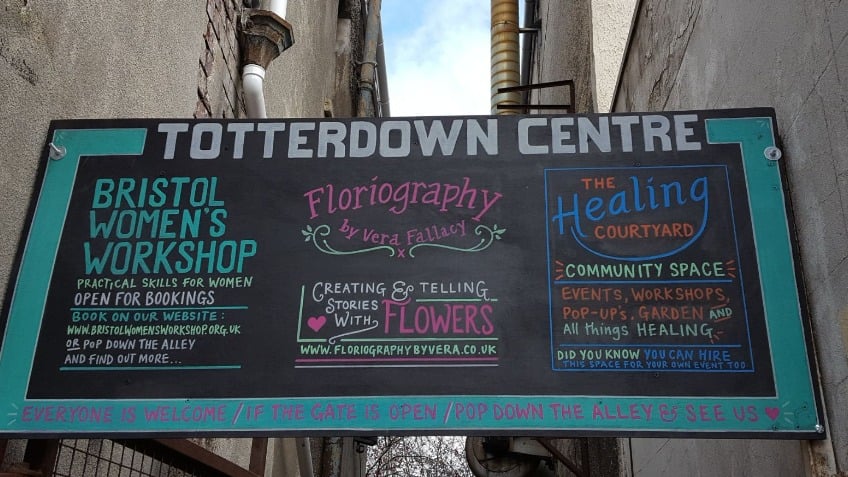 TOTTERDOWN CENTRE
BRISTOL
WOMEN'S
WORKSHOP
PRACTICAL SKILLS FOR WOMEN
OPEN FOR BOOKINGS
BOOK ON OUR WEBSITE:
WWW.BRISTOLWOMENSWORKSHOP.ORG.UK
OR POP DOWN THE ALLEY
AND FIND OUT MORE...
Floriography
by Vera Fallacy
x
CREATING & TELLING
STORIES
WITH FLOWERS
WWW.FLORIOGRAPHYBYVERA.CO.UK
THE
Healing
COURTYARD
COMMUNITY SPACE
EVENTS, WORKSHOPS,
POP-UP'S, GARDEN AND
All things HEALING
DID YOU KNOW YOU CAN HIRE
THIS SPACE FOR YOUR OWN EVENT TOO
EVERYONE IS WELCOME / IF THE GATE IS OPEN / POP DOWN THE ALLEY & SEE US